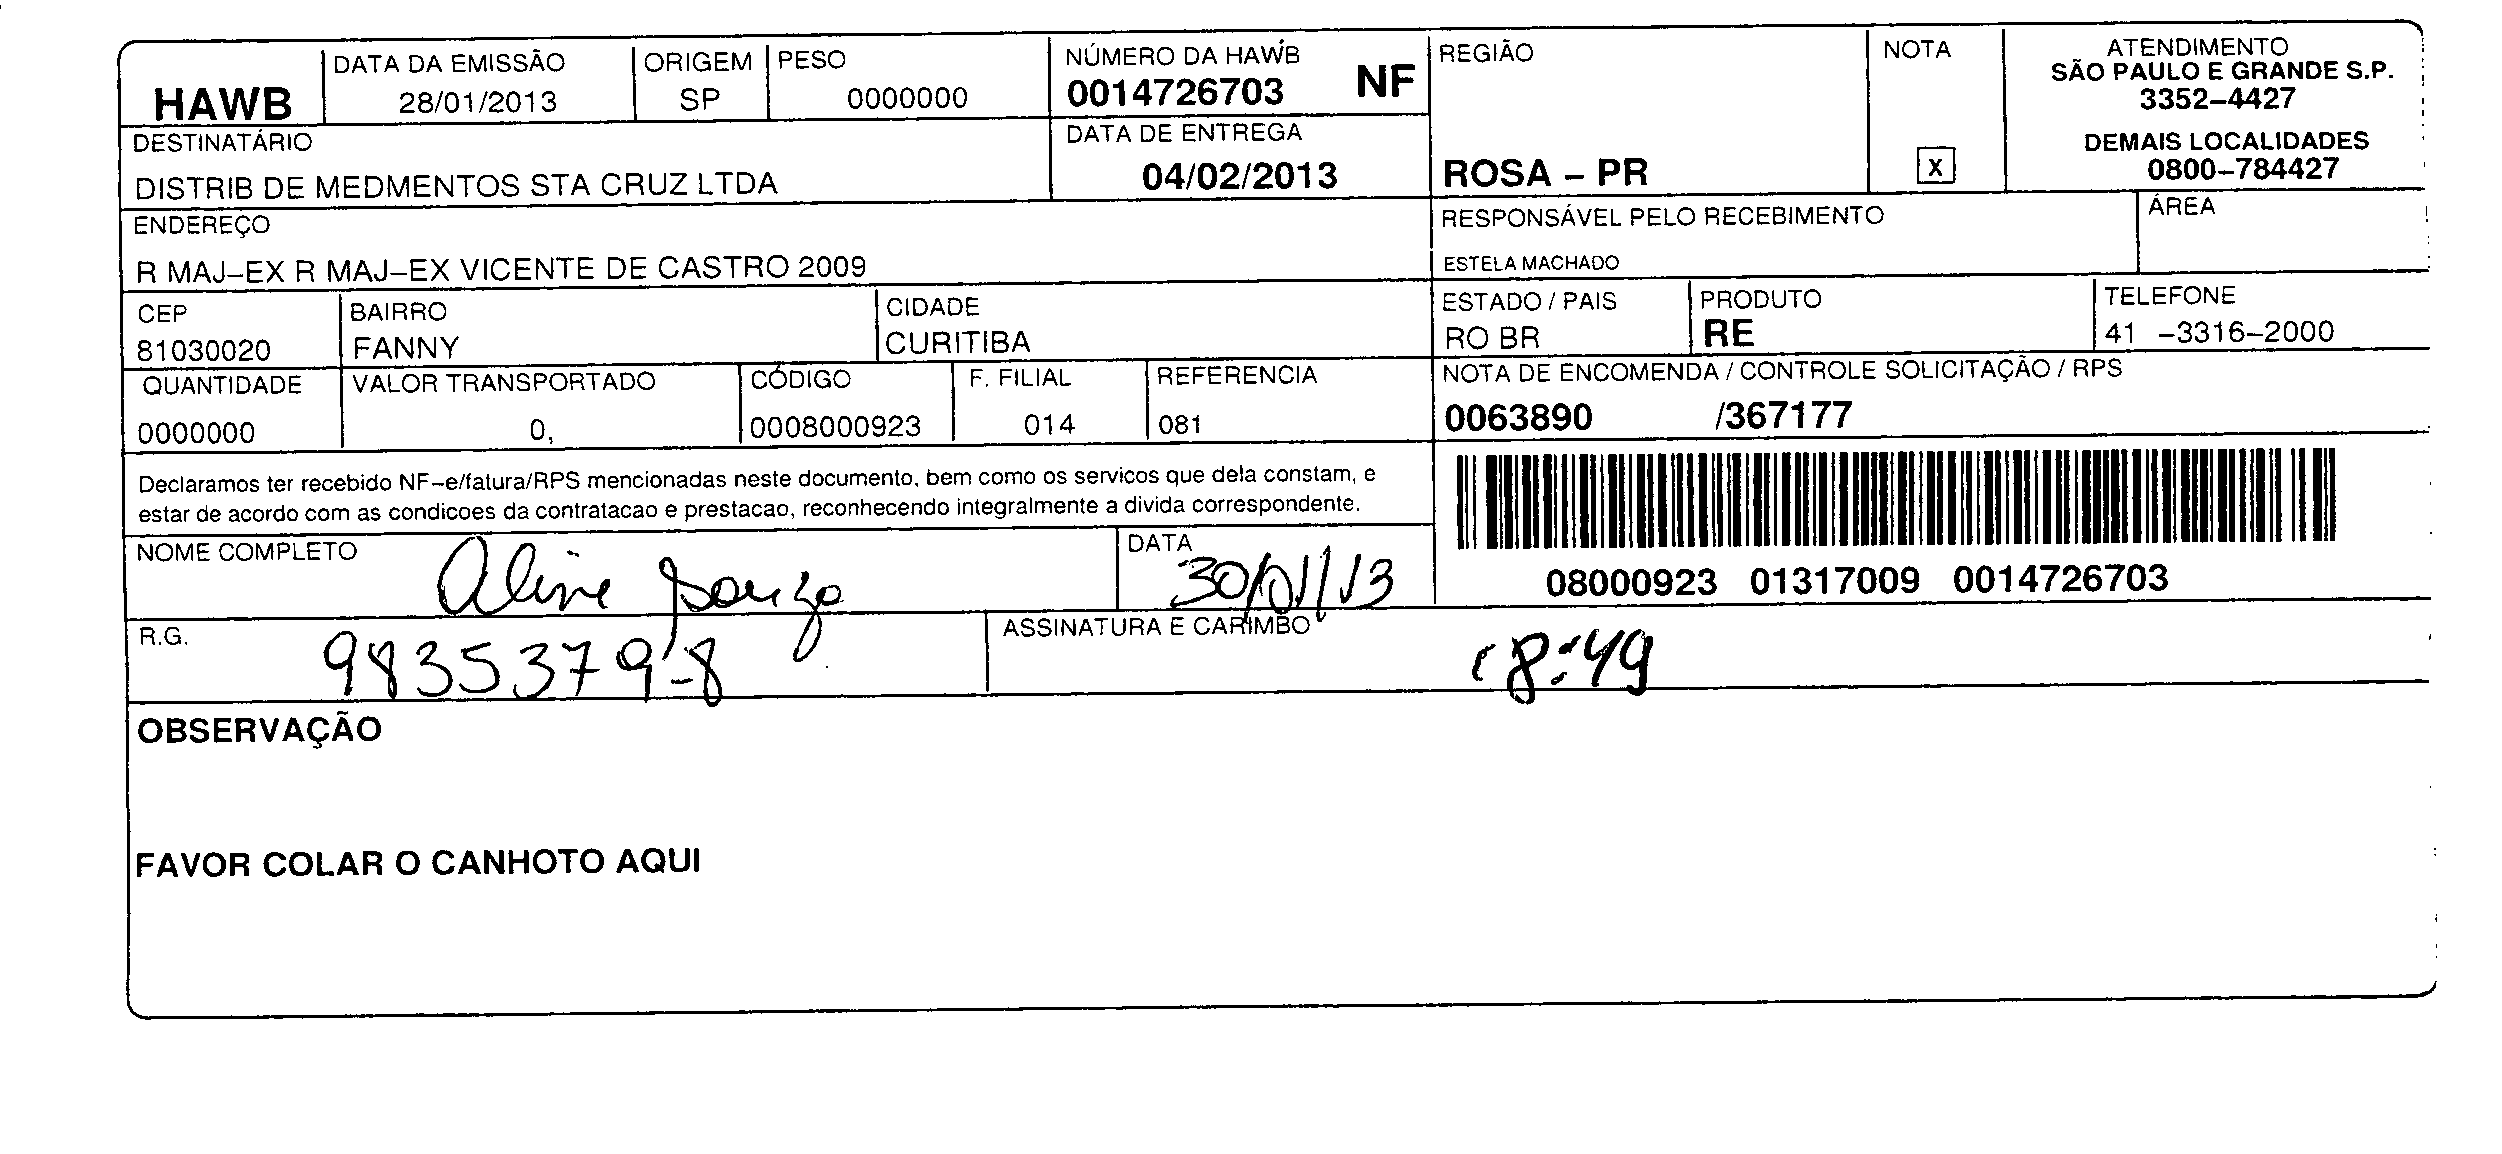 HAWB
DATA DA EMISSÃO
28/01/2013
ORIGEM
SP
PESO
0000000
NÚMERO DA HAWB
0014726703 NF
REGIÃO
ROSA – PR
NOTA
X
ATENDIMENTO
SÃO PAULO E GRANDE S.P.
3352–4427
DEMAIS LOCALIDADES
0800–784427
DESTINATÁRIO
DISTRIB DE MEDMENTOS STA CRUZ LTDA
DATA DE ENTREGA
04/02/2013
ENDEREÇO
R MAJ–EX R MAJ–EX VICENTE DE CASTRO 2009
RESPONSÁVEL PELO RECEBIMENTO
ESTELA MACHADO
ÁREA
CEP
81030020
BAIRRO
FANNY
CIDADE
CURITIBA
ESTADO / PAIS
RO BR
PRODUTO
RE
TELEFONE
41 –3316–2000
QUANTIDADE
0000000
VALOR TRANSPORTADO
0,
CÓDIGO
0008000923
F. FILIAL
014
REFERENCIA
081
NOTA DE ENCOMENDA / CONTROLE SOLICITAÇÃO / RPS
0063890 /367177
Declaramos ter recebido NF–e/fatura/RPS mencionadas neste documento, bem como os servicos que dela constam, e
estar de acordo com as condicoes da contratacao e prestacao, reconhecendo integralmente a divida correspondente.
08000923 01317009 0014726703
NOME COMPLETO
Aline Souza
DATA
30/01/13
R.G.
9835379-8
ASSINATURA E CARIMBO
18:49
OBSERVAÇÃO
FAVOR COLAR O CANHOTO AQUI